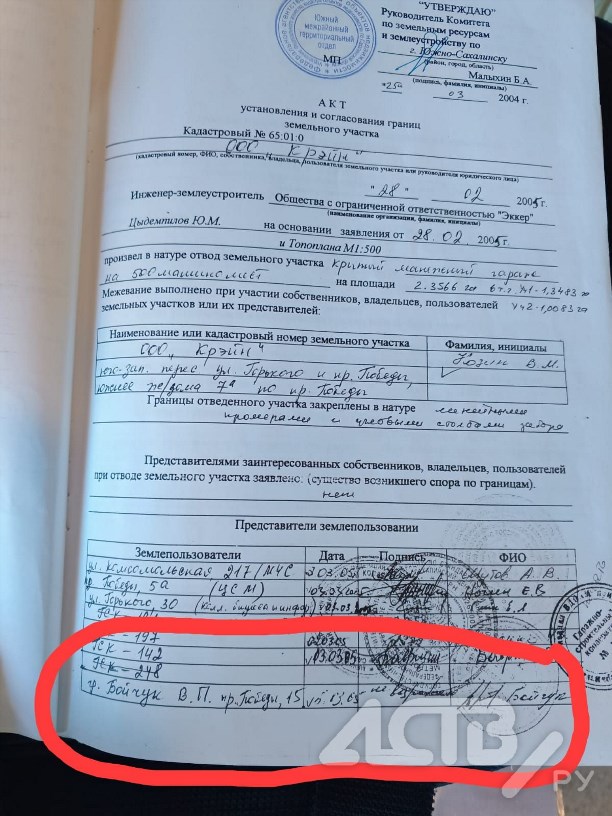 "УТВЕРЖДАЮ"
Руководитель Комитета
по земельным ресурсам
и землеустройству по
г. Южно-Сахалинску
(район, город, область)
Малыхин Б.А.
(подпись, фамилия, инициалы)
"25" 03 2004 г.
Южный
межрайонный
территориальный
отдел
МП
АКТ
установления и согласования границ
земельного участка
Кадастровый № 65:01:0
ООО "Крэйн"
(кадастровый номер, ФИО, собственника, владельца, пользователя земельного участка или руководителя юридического лица)
"28" 02 2005г.
Инженер-землеустроитель Общества с ограниченной ответственностью "Эккер"
(наименование организации, фамилия, инициалы)
Цыдемпилов Ю.М. на основании заявления от 28.02 2005г.
и Топоплана М1:500
произвел в натуре отвод земельного участка Крытый манежный гараж
на 500 машиномест на площади 2.3566 га в т.ч. уч1-1,3483 га
уч2-1,0083 га
Межевание выполнено при участии собственников, владельцев, пользователей
земельных участков или их представителей:
Наименование или кадастровый номер земельного участка Фамилия, инициалы
ООО "Крэйн" Козин В.М.
юго-зап. перес. ул. Горького и пр. Победы,
южнее ж/дома 7а по пр. Победы
Границы отведенного участка закреплены в натуре линейными
промерами и угловыми столбами забора
Представителями заинтересованных собственников, владельцев, пользователей
при отводе земельного участка заявлено: (существо возникшего спора по границам).
нет
Представители землепользовании
Землепользователи Дата Подпись ФИО
ул. Комсомольская 217/МЧС 03.05 А.В.
пр. Победы, 5А (ЦСМ) 03.03.05 Е.В
ул. Горького, 30
ГСК - 197 03.05
ГСК - 142 13.03.05
ГСК - 248
гр. Бойчук В.П. пр. Победы, 15 13.03.05 не возражаю Бойчук
АСТВ.РУ